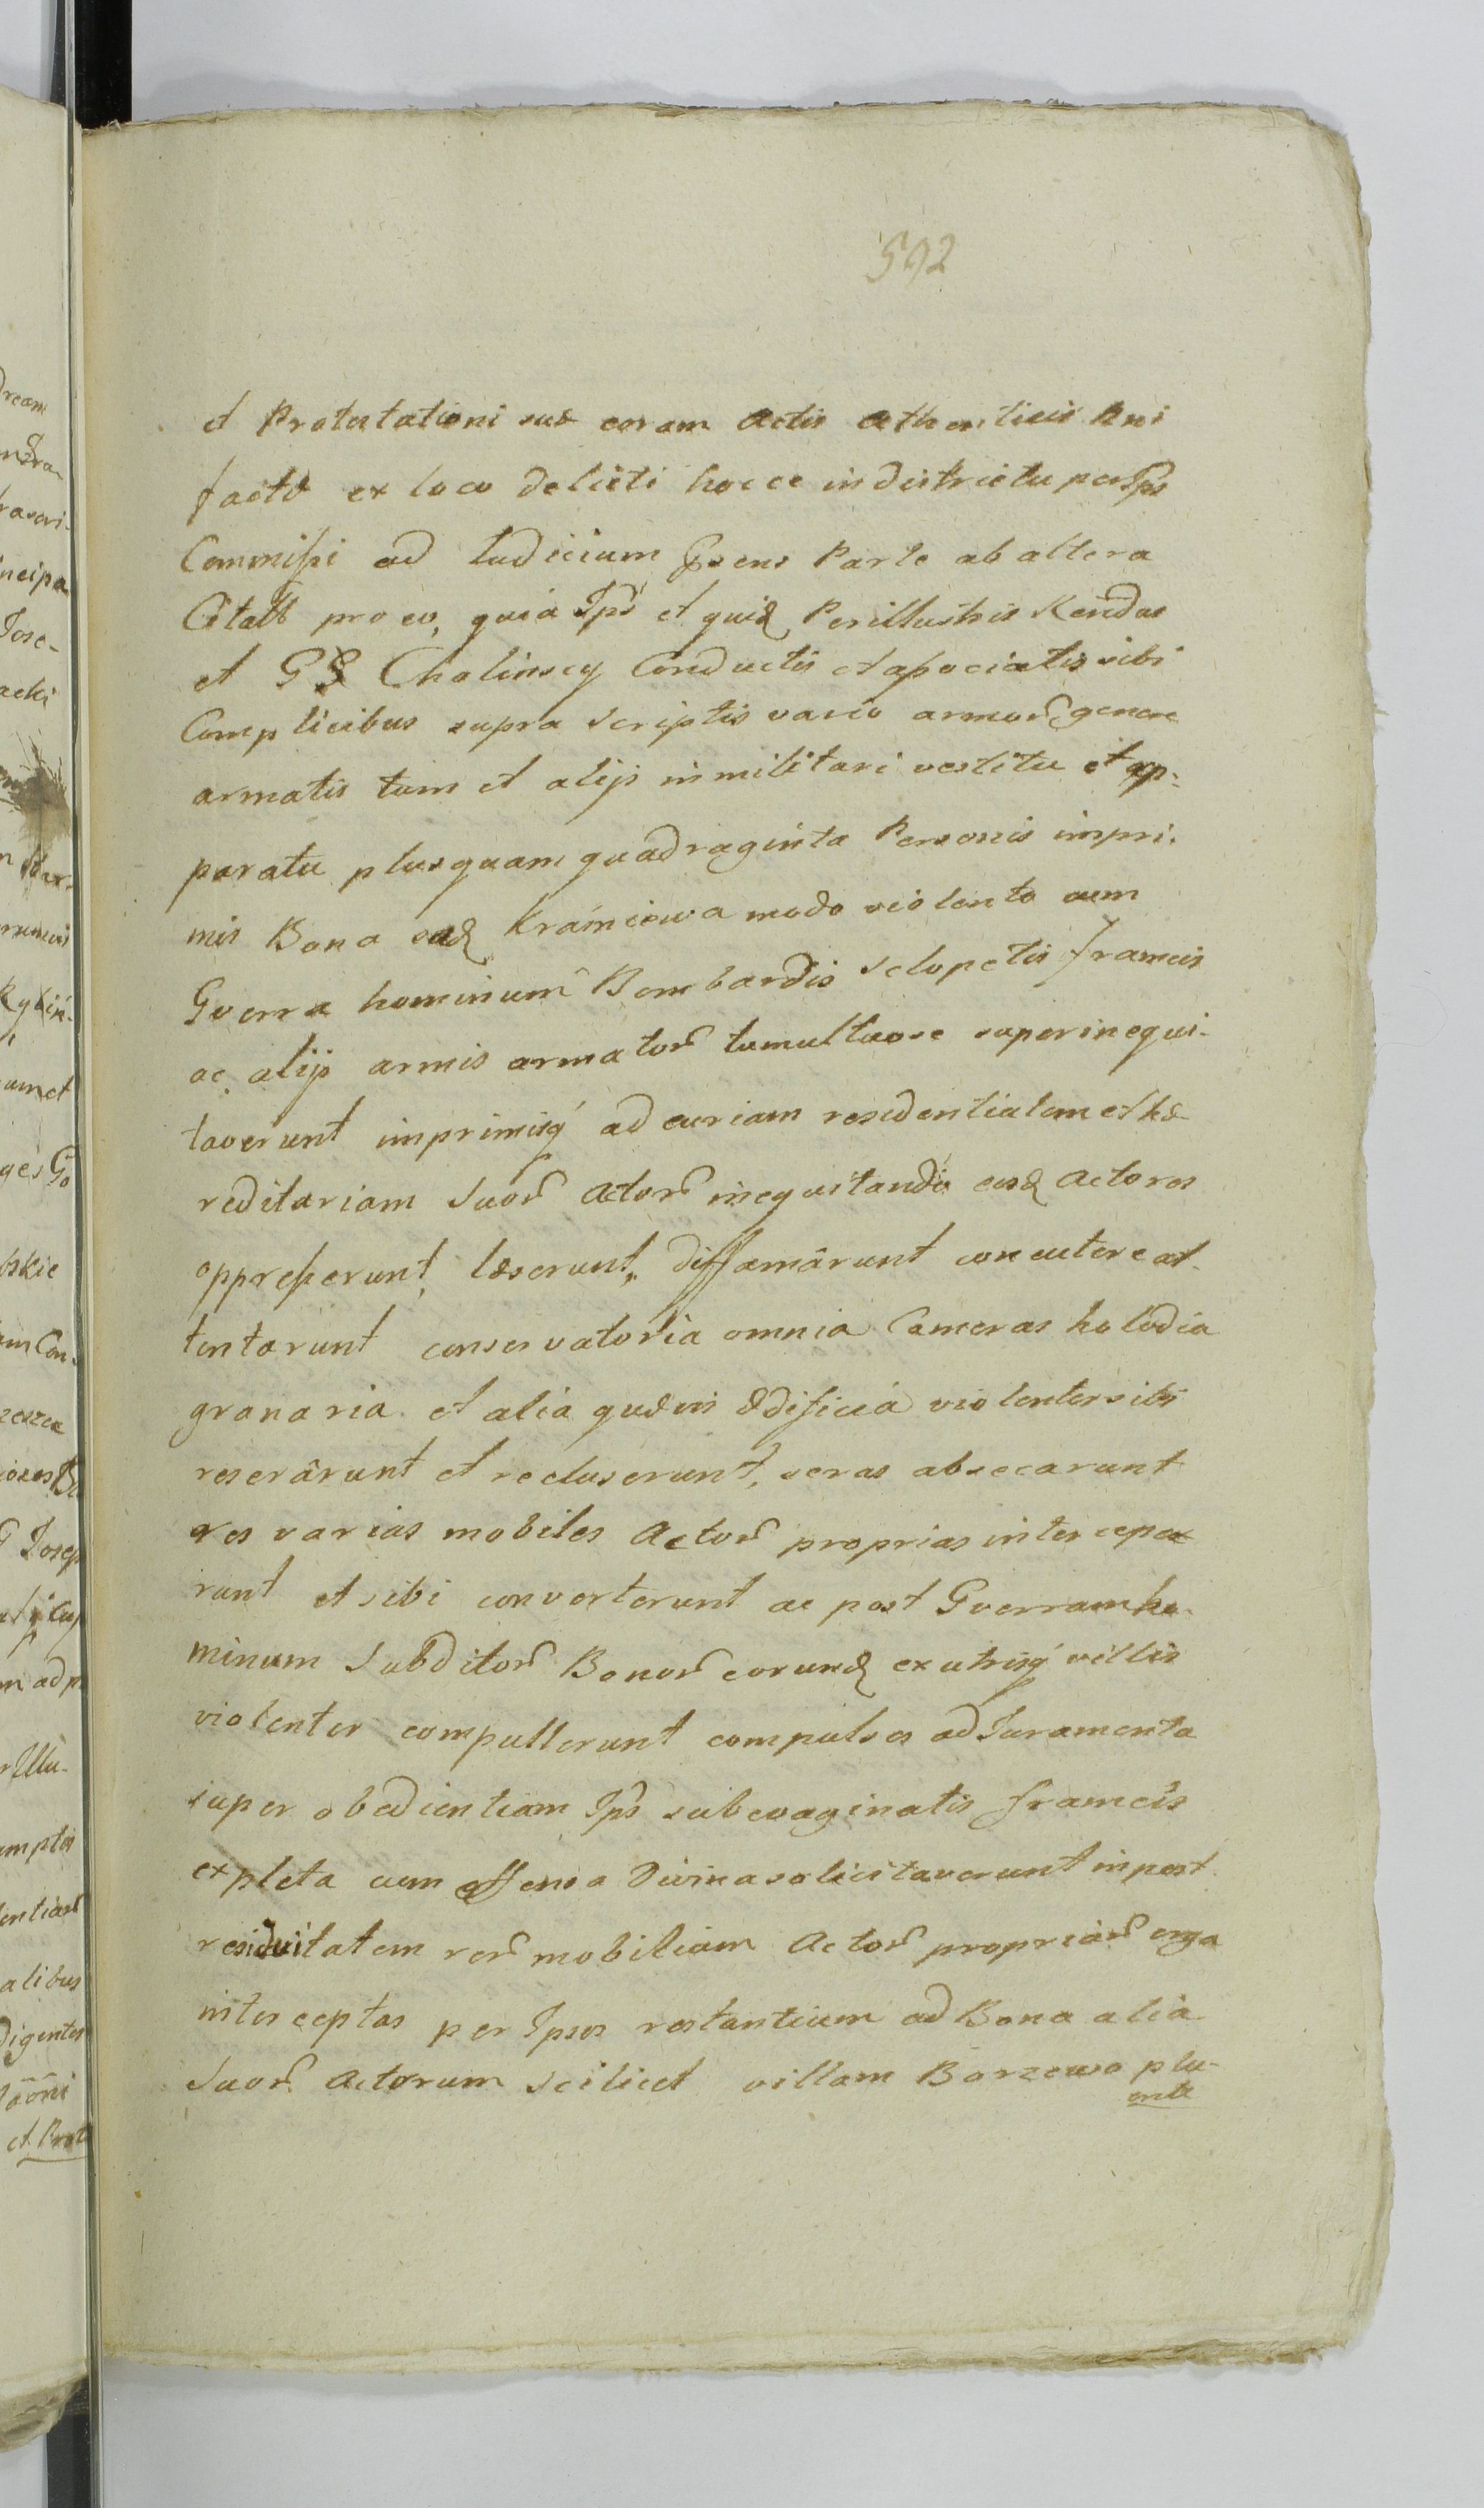 592
et Protestationi suæ coram Actis Athenticis Rni
factæ ex loco delicti hocce in districtu per Ips
Commissi ad Iudicium Præsens Parte ab altera
Citatt pro eo, quia Ips et quid Perillustris Rendus
et GG Cholinscy Conductis et associatis sibi
Complicibus supra scriptis vario armor genere
armatis tum et alijs in militari vestitu et ap-
paratu plusquam quadraginta Personis impri-
mis Bona ead Kraniewa modo violento cum
Gverra hominum Bombardis sclopetis frameis
ac alijs armis armator tumultuose superinequi-
taverunt imprimisq ad curiam residentialem et hæ
reditariam Suor Actor inequitando eosd Actores
oppresserunt, læserunt, diffamârunt concutere at-
tentarunt conservatoria omnia Cameras holodia
granaria et alia quævis ædificia violenter sibi
reserârunt et recluserunt, seras absecarunt
res varias mobiles Actor proprias intercepe
runt et sibi converterunt ac post Gverram ho-
minum Subditor Bonor eorund ex utrisq villis
violenter compullerunt compulsos ad Iuramenta
super obedientiam Ips sub evaginatis frameis
expleta cum offensa Divina solicitaverunt in post
residuitatem rer mobilium Actor propriar erga
interceptas per Ipsos restantium ad Bona alia
Suor Actorum scilicet villam Borzewo plu-